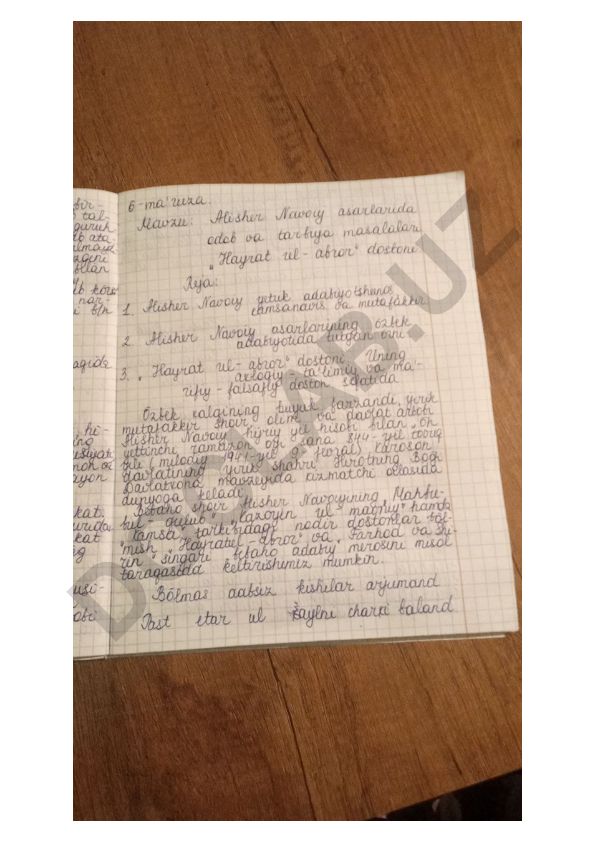 6-ma'ruza.
Mavzu: Alisher Navoiy asarlarida
odob va tarbiya masalalari
„Hayrat ul-abror" dostoni
Reja:
1. Alisher Navoiy yetuk adabiyotshunos
xamsanavis va mutafakkir
2. Alisher Navoiy asarlarining özbek
adabiyotida tutgan örni
3. „Hayrat ul-abror" dostoni. Uning
axloqiy-ta'limiy va ma'-
rifiy-falsafiy doston sifatida
Özbek xalqining buyuk farzandi, yirik
mutafakkir shoir, olim va davlat arbobi
Alisher Navoiy hijriy yil hisobi bilan „Ön
yettinchi ramazon oyi sana 844-yil tovuq
yili (milodiy 1941-yil 9 fevral) Xuroson
davlatining yirik shahri Hirotning Bogi
Davlatxona mavzeyida xizmatchi oilasida
dunyoga keladi.
Bebaho shoir Alisher Navoiyning Mahbu-
bul-qulub" „Xazoyin ul-maoniy" hamda
"Xamsa" tarkibidagi nodir dostonlar böl-
mish „Hayratul-abror" va „Farhod va Shi-
rin" singari bebaho adabiy merosini misol
tariqasida keltirishimiz mumkin.
Bölmas adabsiz kishilar arjumand
Past etar ul xaylni charxi baland
bir-
guruh
ata
bilan
kör
nar-
i bln
agida
ning
kat.
urida
kat
DOCLAB.UZ